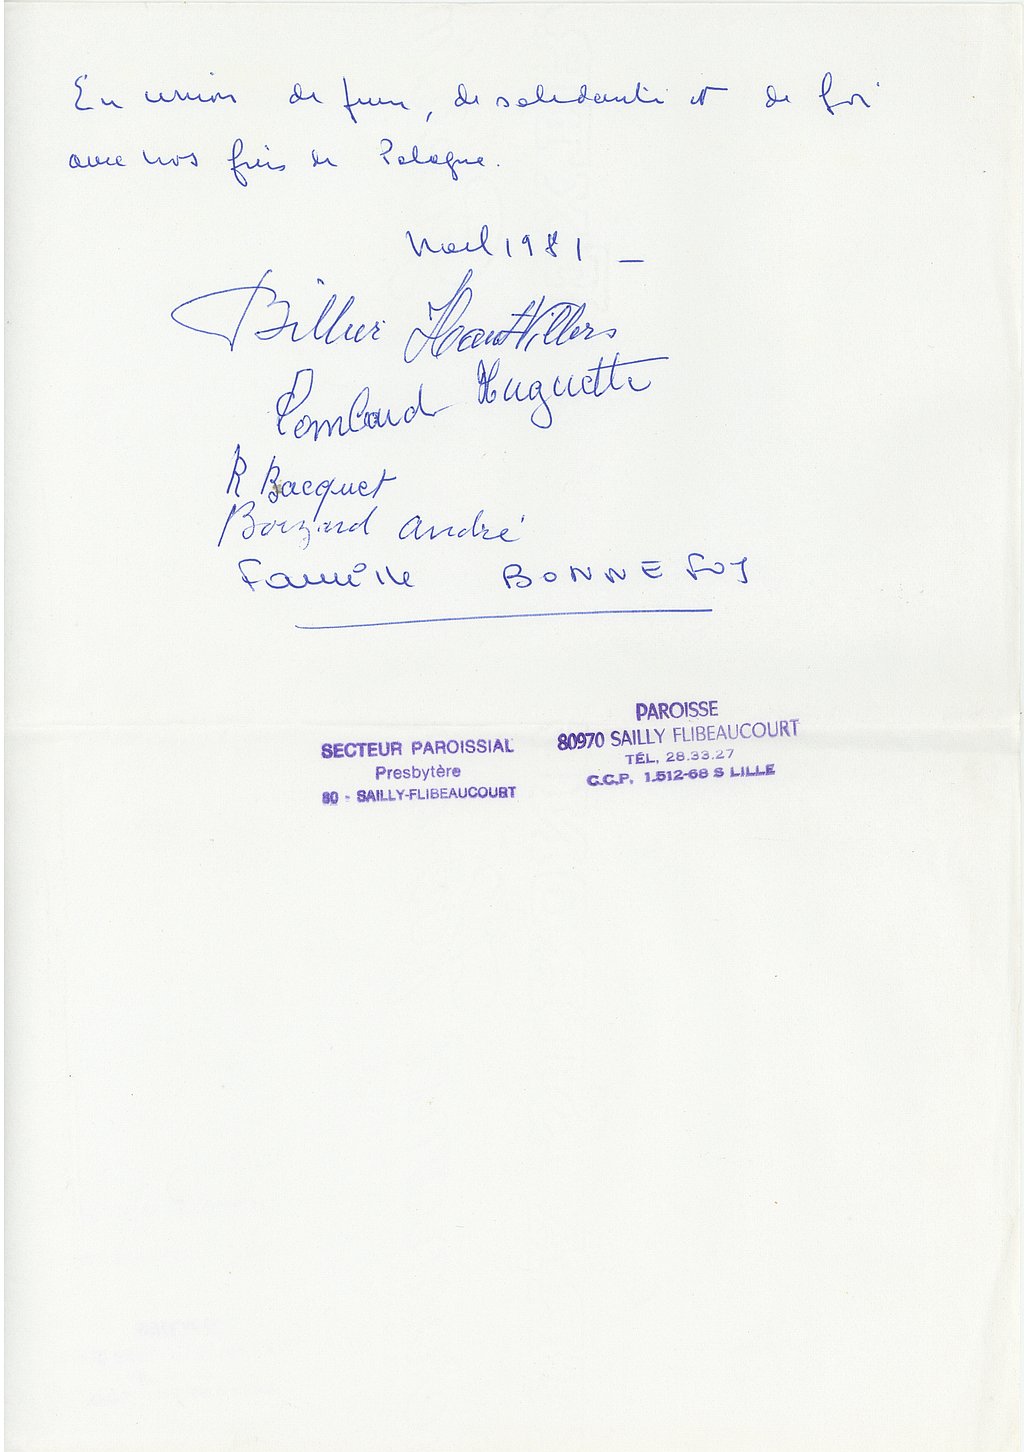 En union de prière, de solidarité et de foi
avec nos frères de Pologne.
Noël 1981 _
Billier HautVillers
Lombard Huguette
R Bacquet
André
Famille BONNEFOY
SECTEUR PAROISSIAL
Presbytère
80 - SAILLY-FLIBEAUCOURT
PAROISSE
80970 SAILLY FLIBEAUCOURT
TÉL. 28.33.27
C.C.P. 1.512-68 S LILLE